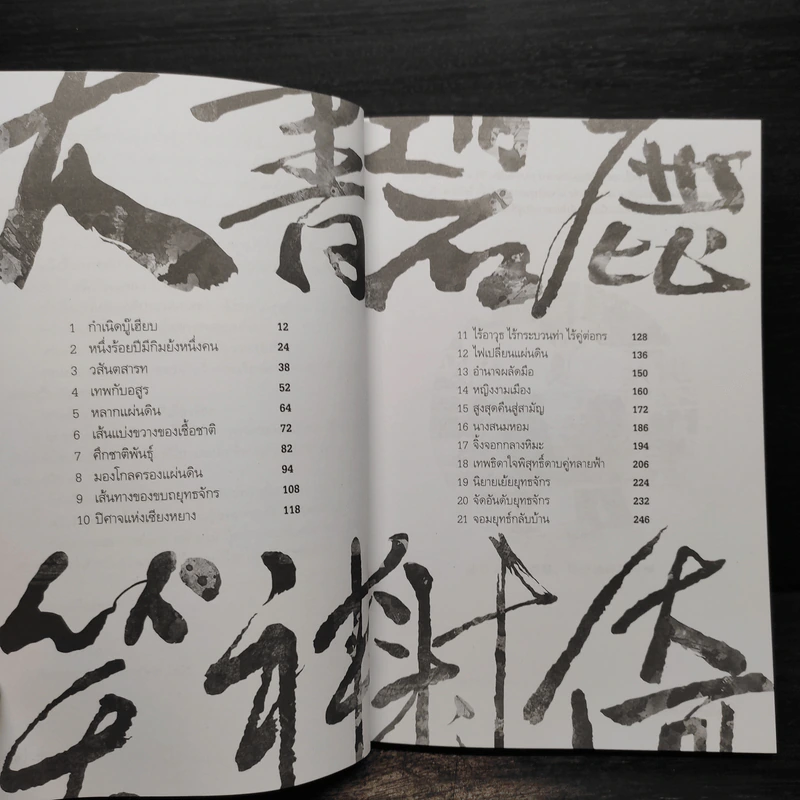 大 書 碧 鹿
1 กำเนิดบู๊เฮียบ 12
2 หนึ่งร้อยปีมีกิมย้งหนึ่งคน 24
3 วสันตสารท 38
4 เทพกับอสูร 52
5 หลากแผ่นดิน 64
6 เส้นแบ่งขวางของเชื้อชาติ 72
7 ศึกชาติพันธุ์ 82
8 มองโกลครองแผ่นดิน 94
9 เส้นทางของขบถยุทธจักร 108
10 ปีศาจแห่งเซียงหยาง 118
11 ไร้อาวุธ ไร้กระบวนท่า ไร้คู่ต่อกร 128
12 ไฟเปลี่ยนแผ่นดิน 136
13 อำนาจผลัดมือ 150
14 หญิงงามเมือง 160
15 สูงสุดคืนสู่สามัญ 172
16 นางสนมหอม 186
17 จิ้งจอกกลางหิมะ 194
18 เทพธิดาใจพิสุทธิ์ดาบคู่ทลายฟ้า 206
19 นิยายเย้ยยุทธจักร 224
20 จัดอันดับยุทธจักร 232
21 จอมยุทธ์กลับบ้าน 246
笑 神 射 倚